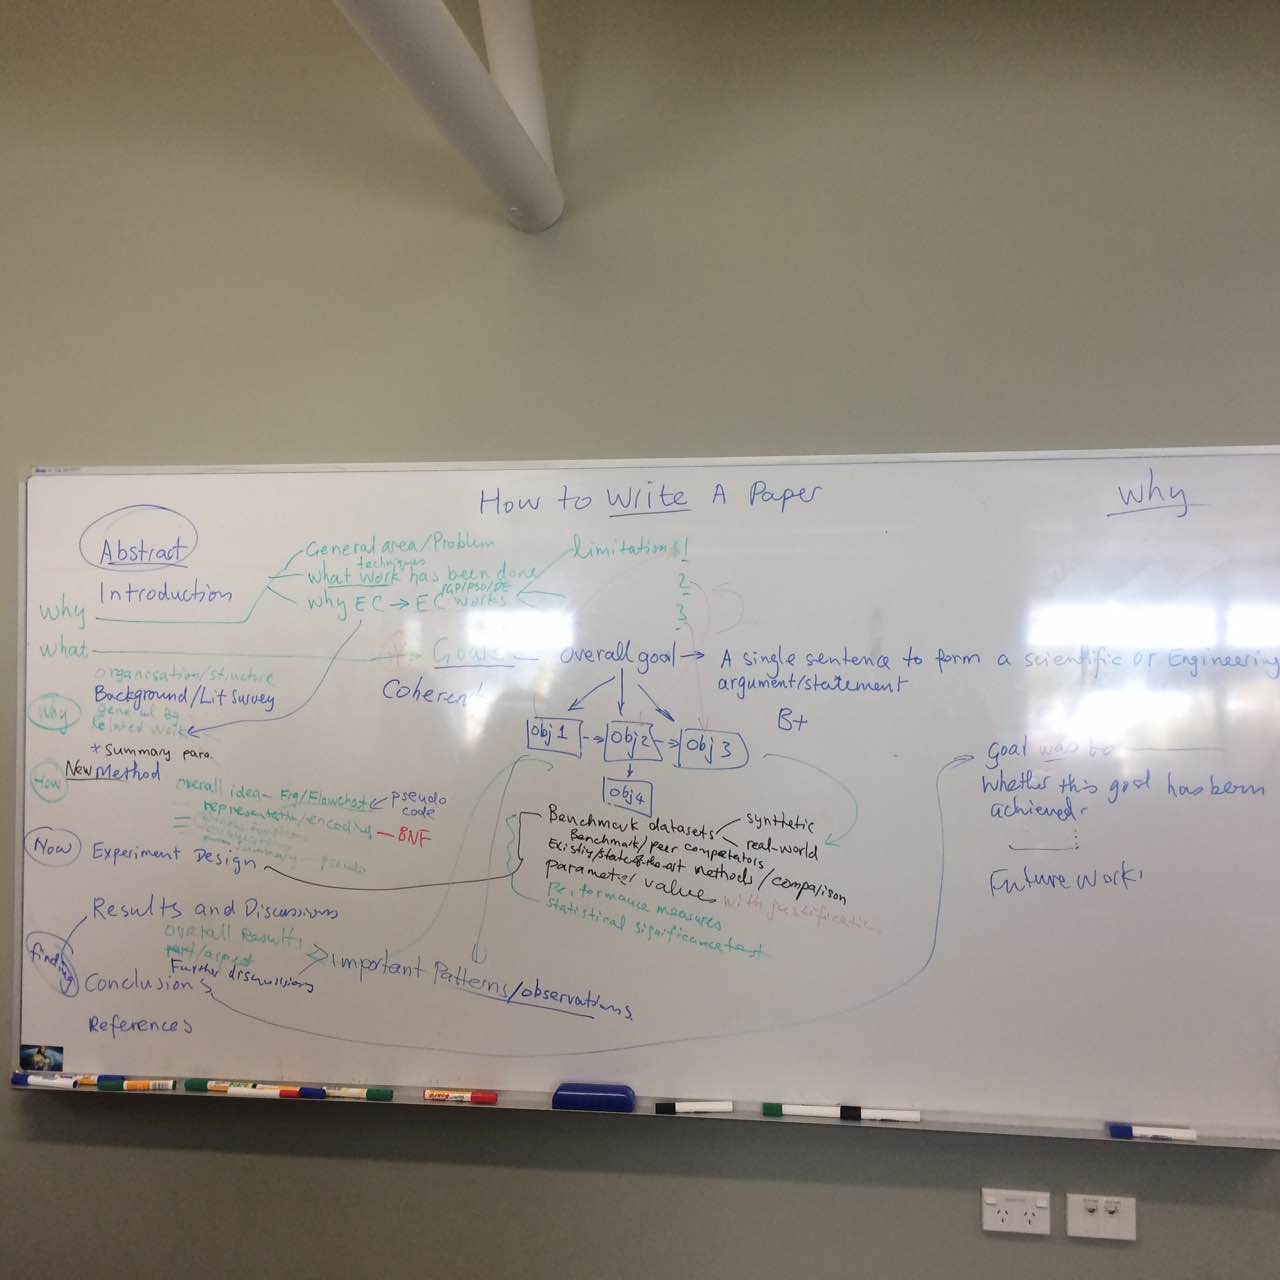 How to Write A Paper
Why
Abstract
Introduction
General area/Problem
techniques
what work has been done
why EC → EC works
/GP/PSO/DE
limitations 1
2
3
why
what
Goals
Overall goal → A single sentence to form a scientific or Engineering
argument/statement
Coherent
B+
organisation/structure
Background/Lit Survey
why
general bg
related work
* Summary para.
Obj 1
Obj 2
Obj 3
Obj 4
How
New Method
Overall idea – Fig/Flowchart
pseudo
code
representation/encoding – BNF
pseudo
Now
Experiment Design
Benchmark datasets
synthetic
real-world
Benchmark/peer competators
Existing/State-of-the-art methods/comparison
parameter values with justification
Performance measures
Statistical significance test
Results and Discussions
Overall Results
part/aspect
Further discussions
Important Patterns/observations.
finding
Conclusions
References
Goal was to
Whether this goal has been
achieved.
Future work